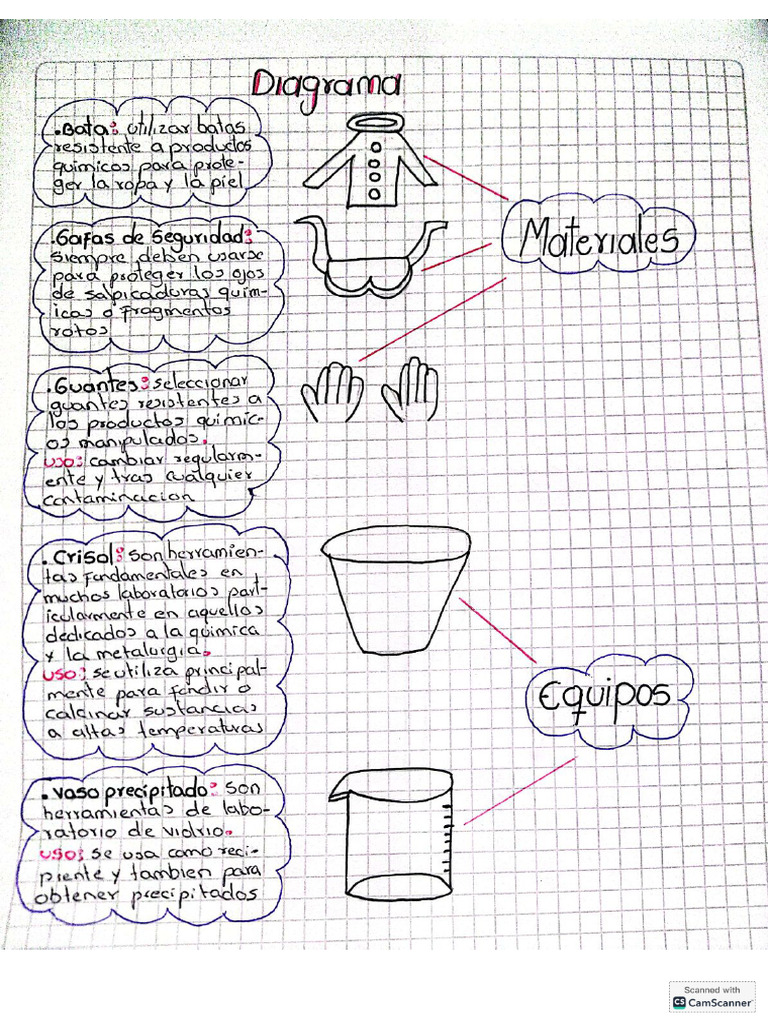 Diagrama
.Bata: utilizar batas
resistente a productos
quimicos para prote-
ger la ropa y la piel
.Gafas de Seguridad:
siempre deben usarse
para proteger los ojos
de salpicaduras quim-
icas o fragmentos
rotos
.Guantes: seleccionar
guantes resistentes a
los productos quimic-
os manipulados.
uso: cambiar regularm-
ente y tras cualquier
contaminacion
Materiales
.Crisol: son herramien-
tas fundamentales en
muchos laboratorios part-
icularmente en aquellos
dedicados a la quimica
y la metalurgia.
uso: se utiliza principal-
mente para fundir o
calcinar sustancias
a altas temperaturas
Equipos
.vaso precipitado: son
herramientas de labo-
ratorio de vidrio.
uso: se usa como reci-
piente y tambien para
obtener precipitados
Scanned with
CS CamScanner